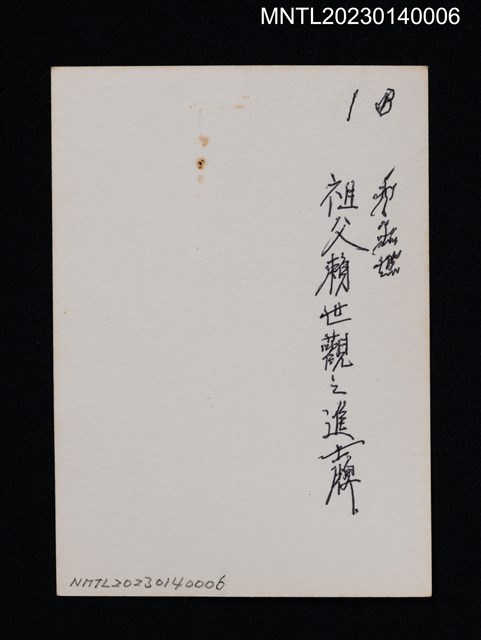 MNTL20230140006
1 B
祖父賴世觀之進士牌
NMTL20230140006